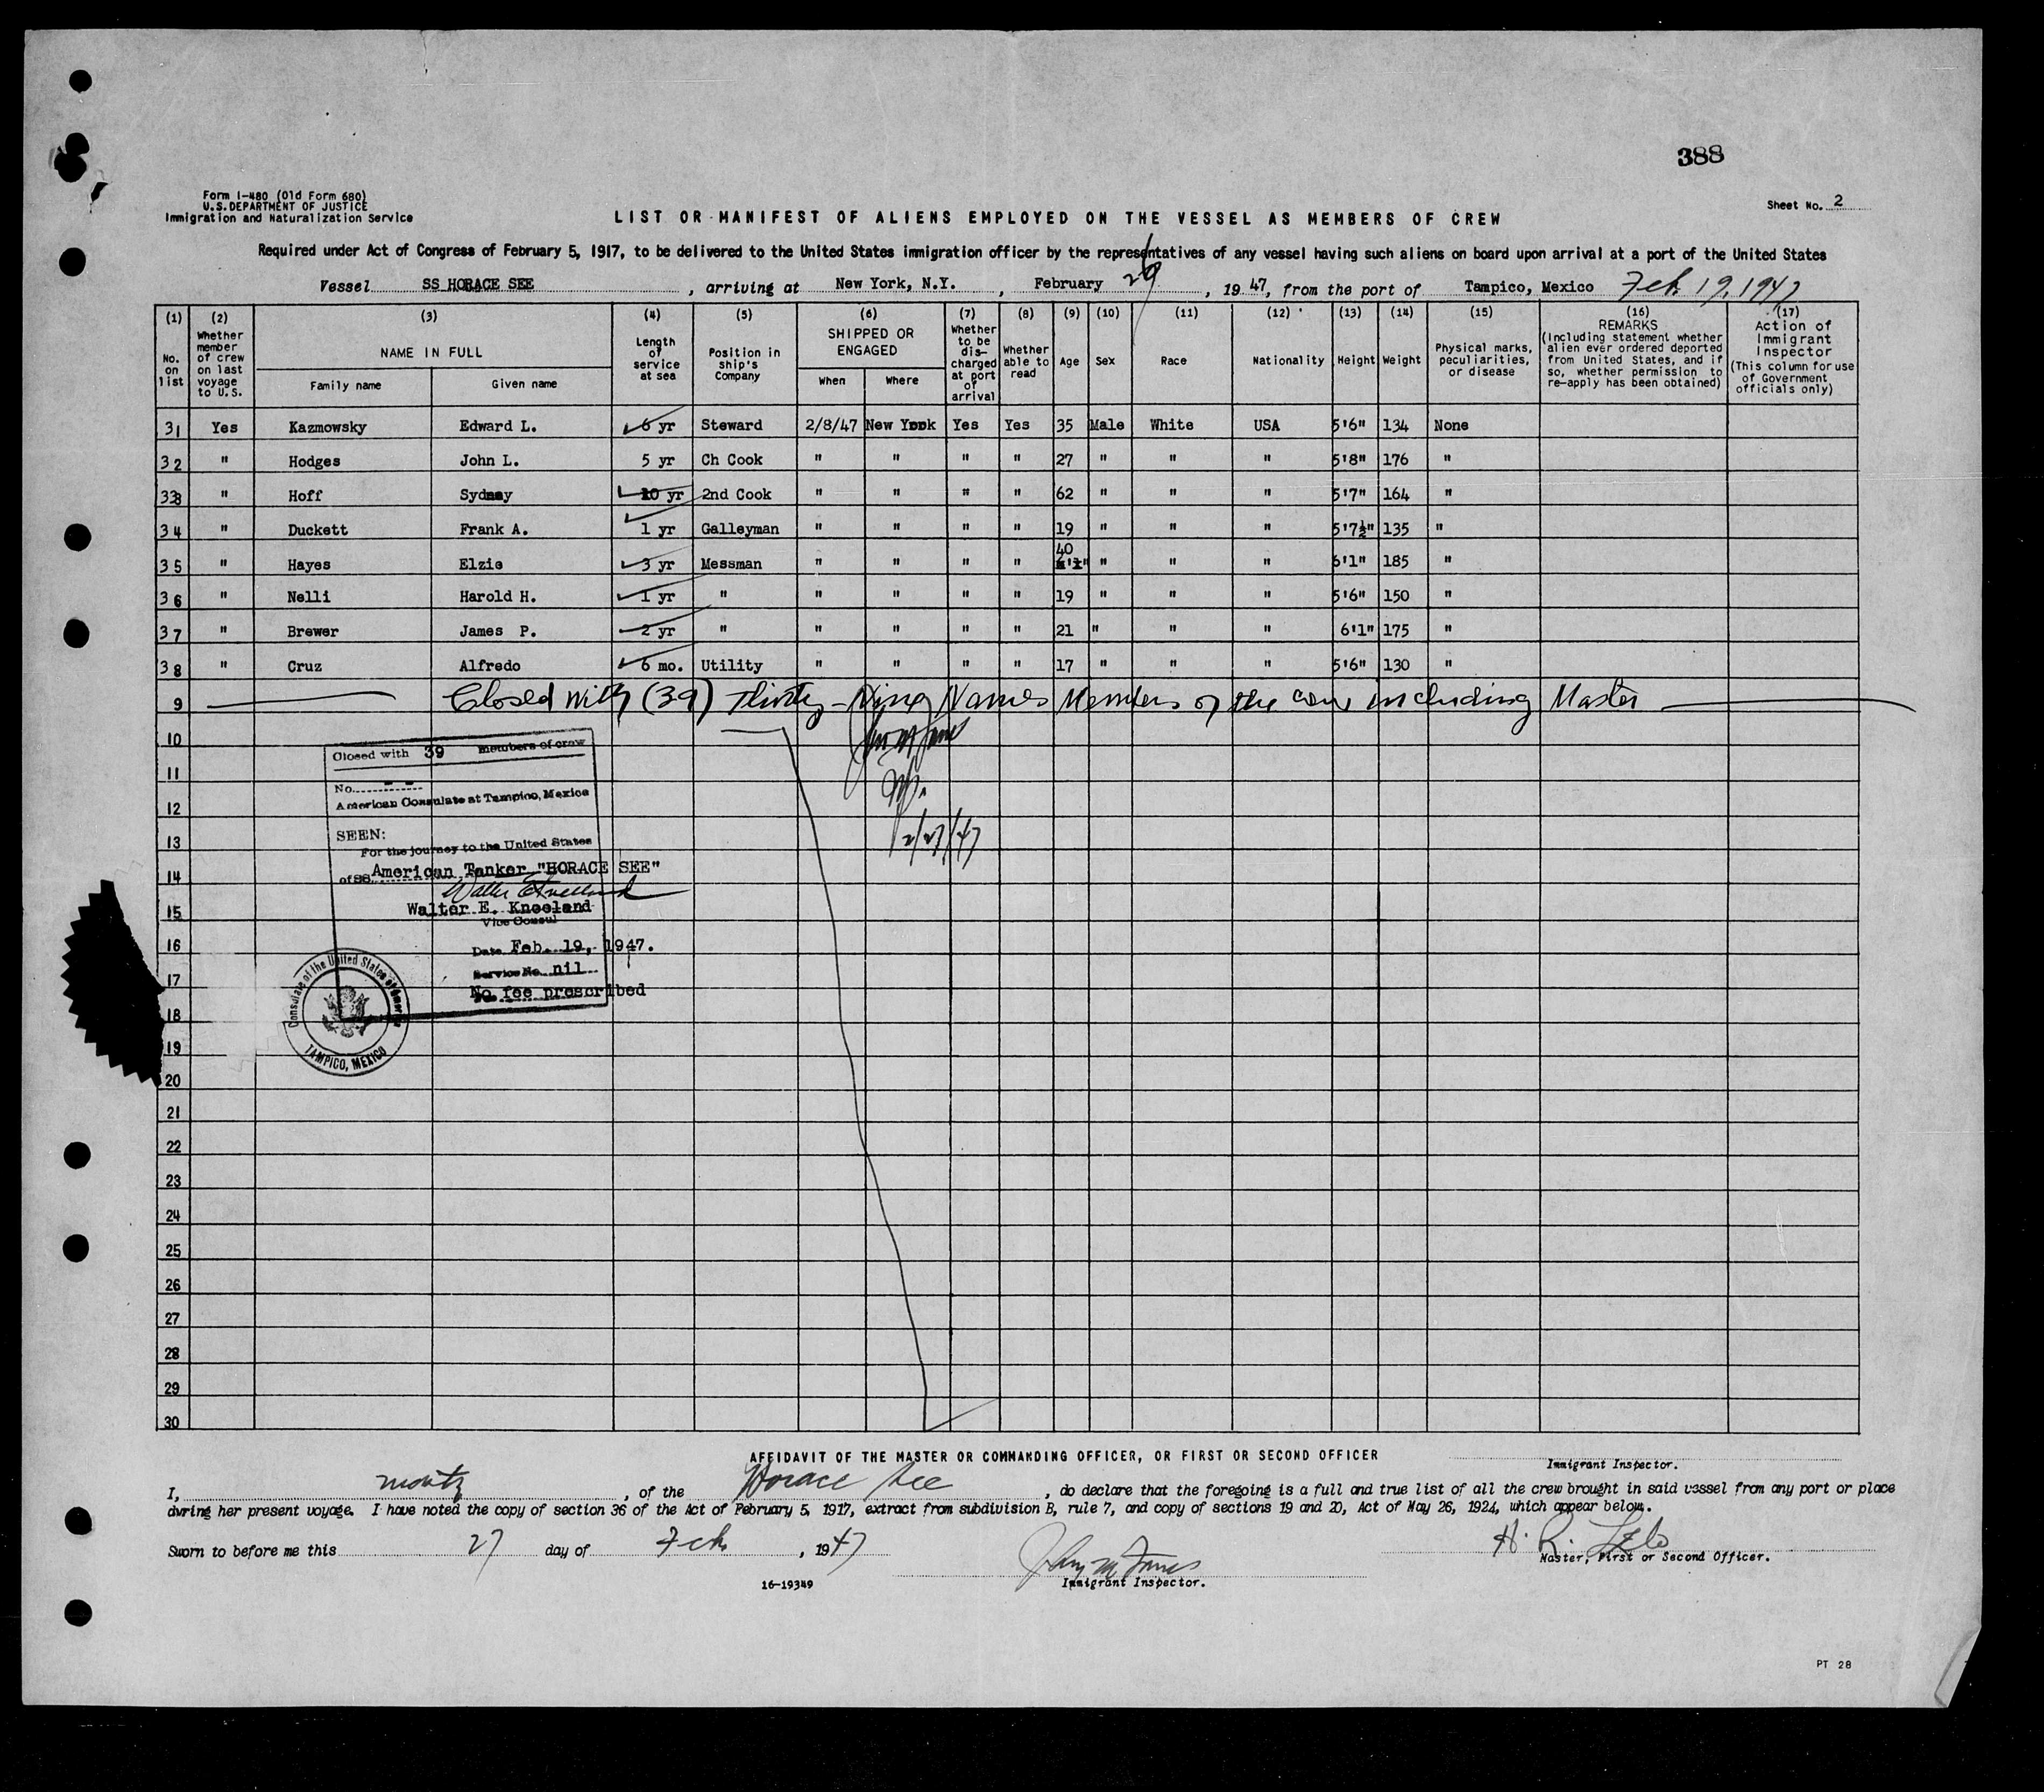 388
Form I-480 (Old Form 680)
U.S. DEPARTMENT OF JUSTICE
Immigration and Naturalization Service
Sheet No. 2
LIST OR MANIFEST OF ALIENS EMPLOYED ON THE VESSEL AS MEMBERS OF CREW
Required under Act of Congress of February 5, 1917, to be delivered to the United States immigration officer by the representatives of any vessel having such aliens on board upon arrival at a port of the United States
Vessel SS HORACE SEE, arriving at New York, N.Y., February 26, 1947, from the port of Tampico, Mexico Feb. 19, 1947
(1) No. on list
(2) Whether member of crew on last voyage to U.S.
(3) NAME IN FULL Family name Given name
(4) Length of service at sea
(5) Position in ship's Company
(6) SHIPPED OR ENGAGED When Where
(7) Whether to be discharged at port of arrival
(8) Whether able to read
(9) Age
(10) Sex
(11) Race
(12) Nationality
(13) Height
(14) Weight
(15) Physical marks, peculiarities, or disease
(16) REMARKS (Including statement whether alien ever ordered deported from United States, and if so, whether permission to re-apply has been obtained)
(17) Action of Immigrant Inspector (This column for use of Government officials only)
31 Yes Kazmowsky Edward L. 6 yr Steward 2/8/47 New York Yes Yes 35 Male White USA 5'6" 134 None
32 " Hodges John L. 5 yr Ch Cook " " " " 27 " " " 5'8" 176 "
33 " Hoff Sydney 10 yr 2nd Cook " " " " 62 " " " 5'7" 164 "
34 " Duckett Frank A. 1 yr Galleyman " " " " 19 " " " 5'7½" 135 "
35 " Hayes Elzie 3 yr Messman " " " " 40 " " " 6'1" 185 "
36 " Nelli Harold H. 1 yr " " " " " 19 " " " 5'6" 150 "
37 " Brewer James P. 2 yr " " " " " 21 " " " 6'1" 175 "
38 " Cruz Alfredo 6 mo. Utility " " " " 17 " " " 5'6" 130 "
9 Closed with (39) Thirty-Nine Names Members of the crew including Master
10
11
12
13
14
15
16
17
18
19
20
21
22
23
24
25
26
27
28
29
30
2/27/47
Closed with 39 members of crew
No. --
American Consulate at Tampico, Mexico
SEEN:
For the journey to the United States
of SS American Tanker "HORACE SEE"
Walter E. Kneeland
Walter E. Kneeland
Vice Consul
Date Feb. 19, 1947.
Service No. nil
No fee prescribed
Consulate of the United States of America
TAMPICO, MEXICO
AFFIDAVIT OF THE MASTER OR COMMANDING OFFICER, OR FIRST OR SECOND OFFICER
Immigrant Inspector.
I, , of the Horace See, do declare that the foregoing is a full and true list of all the crew brought in said vessel from any port or place
during her present voyage. I have noted the copy of section 36 of the Act of February 5, 1917, extract from subdivision B, rule 7, and copy of sections 19 and 20, Act of May 26, 1924, which appear below.
Sworn to before me this 27 day of Feb, 1947
H. R.
Master, First or Second Officer.
Immigrant Inspector.
16-19349
PT 28